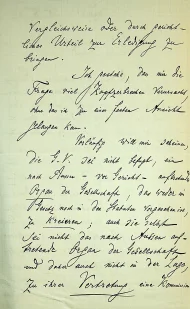 Vergleichsweise oder durch gericht-
liches Urteil zur Erledigung zu
bringen.
Ich gestehe, dass mir die
Frage viel Kopfzerbrechen verursacht
ohne dass ich zu einer festen Ansicht
gelangen kann.
Vorläufig will mir scheinen,
die G.V. sei nicht befugt, ein
nach Aussen - vor Gericht - auftretendes
Organ der Gesellschaft, das weder im
noch in den Statuten vorgesehen ist
zu kreieren; auch die selbst
sei nicht das nach Aussen auf-
tretende Organ der Gesellschaft
und daher auch nicht in der Lage,
zu ihrer Vertretung eine Kommission